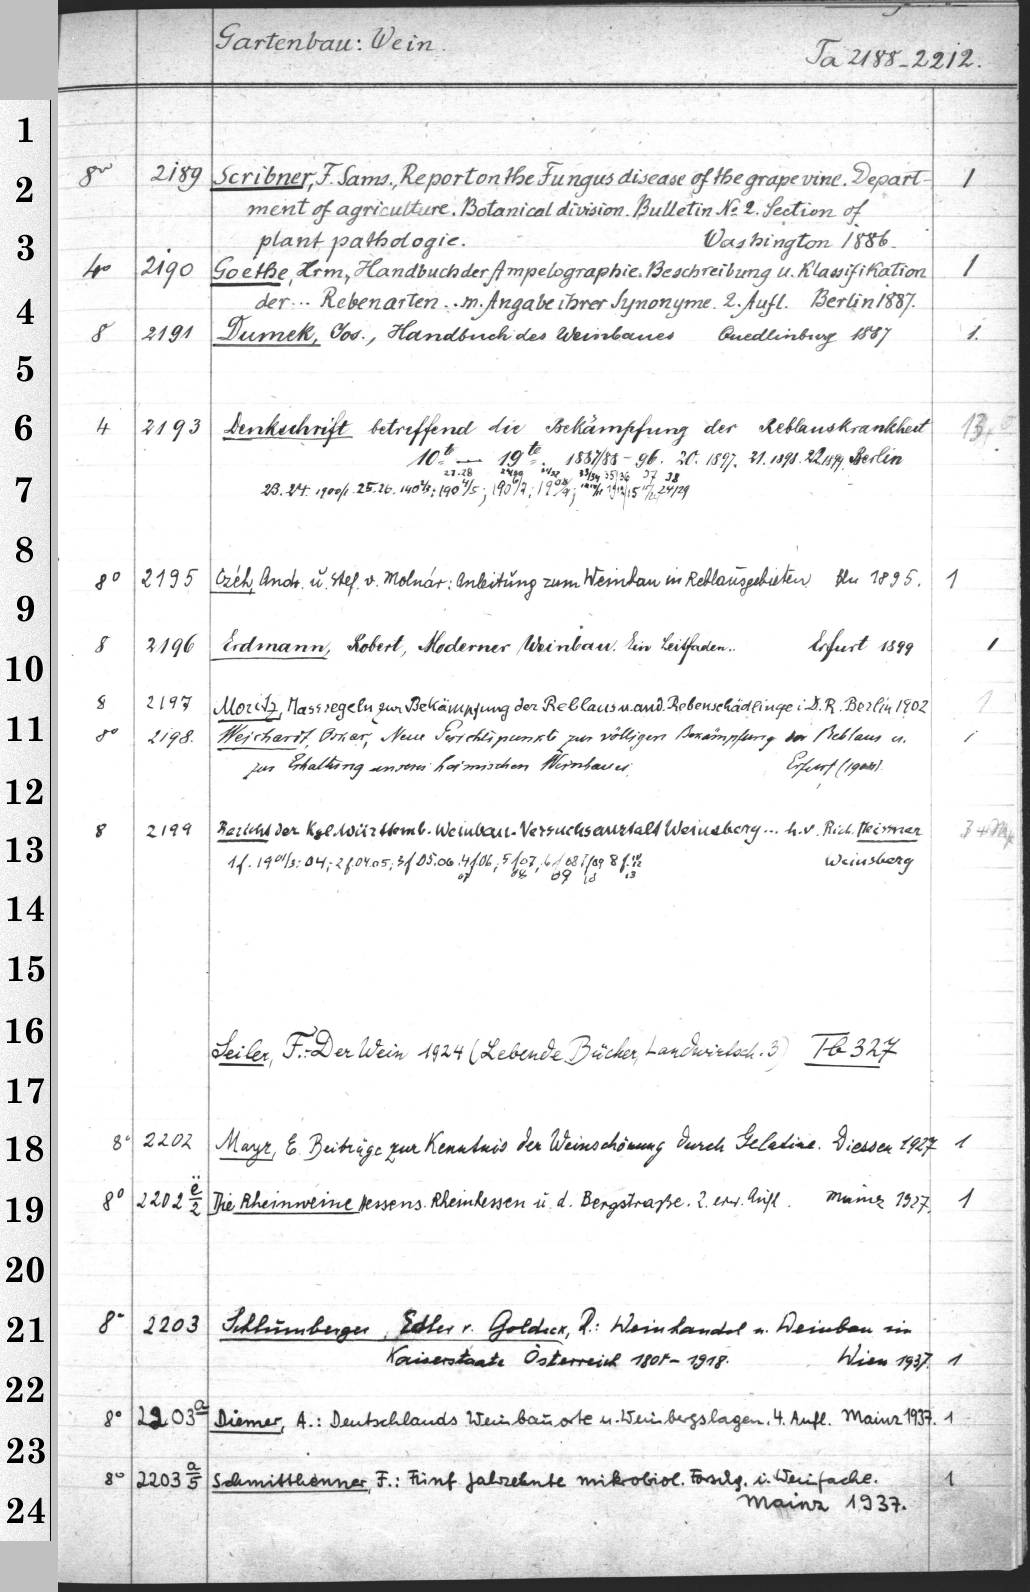 Gartenbau: Wein.
Ta 2188-2212.
1
2
3
4
5
6
7
8
9
10
11
12
13
14
15
16
17
18
19
20
21
22
23
24
8° 2189 Scribner, F. Lams., Report on the Fungus disease of the grape vine. Depart- 1
ment of agriculture. Botanical division. Bulletin No 2. Section of
plant pathologie. Washington 1886.
4° 2190 Goethe, Hrm., Handbuch der Ampelographie. Beschreibung u. Klassifikation 1
der... Rebenarten... m. Angabe ihrer Synonyme. 2. Aufl. Berlin 1887.
8 2191 Dumek, Jos., Handbuch des Weinbaues Quedlinburg 1887 1.
4 2193 Denkschrift betreffend die Bekämpfung der Reblauskrankheit 13
10te — 19te. 1887/88 - 96. 20. 1897. 21. 1898. 22. 1899. Berlin
23. 24. 1900/1. 25. 26.
8° 2195 Czéh, Andr. u. Stef. v. Molnár: Anleitung zum Weinbau in Reblausgebieten 1895. 1
8 2196 Erdmann, Robert, Moderner Weinbau. Ein Leitfaden.. Erfurt 1899 1
8 2197 Moritz, Massregeln zur Bekämpfung der Reblaus u. and. Rebenschädlinge i. D. R. Berlin 1902 1
8° 2198. Weichardt, Oskar, Neue Gesichtspunkte zur völligen Bekämpfung der Reblaus u. 1
zur Erhaltung unseres heimischen Weinbaues. Erfurt
8 2199 Bericht der Kgl. Württemb. Weinbau-Versuchsanstalt Weinsberg... h.v. Rich. Meissner 3
Weinsberg
Seiler, F.: Der Wein 1924 (Lebende Bücher, Landwirtsch. 3) Tb 327
8° 2202 Mayr, E. Beiträge zur Kenntnis der Weinschönung durch Gelatine. Diessen 1927 1
8° 2202 e/2 Die Rheinweine Hessens. Rheinhessen u. d. Bergstraße. 2. erw. Aufl. Mainz 1927. 1
8° 2203 Schlumberger, Edler v. Goldeck, R.: Weinhandel u. Weinbau im
Kaiserstaate Österreich 1804-1918. Wien 1937. 1
8° 2203a Diemer, A.: Deutschlands Weinbauorte u. Weinbergslagen. 4. Aufl. Mainz 1937. 1
8° 2203 a/5 Schmitthenner, F.: Fünf Jahrzehnte mikrobiol. Forschg. i. Weinfache. 1
Mainz 1937.